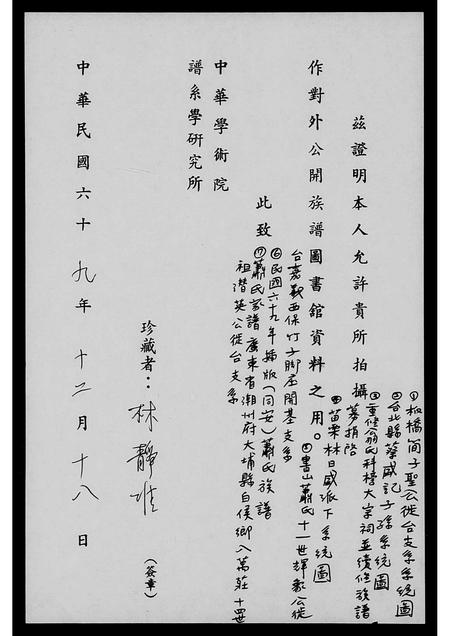 茲證明本人允許貴所拍攝
①板橋簡子聖公徙台支系統圖
②台北縣蔡咸記子孫系統圖
③重修翁氏科榜大宗祠並續修族譜
募捐啓
④苗栗林日盛派下系統圖
作對外公開族譜圖書館資料之用。
⑤書山蕭氏十一世輝公徙
台嘉義西保竹子脚庄開基支系
此致
⑥民國六十九年編版(同安)蕭氏族譜
⑦蕭氏家譜廣東省潮州府大埔縣白侯鄉八萬莊十四世
祖潛英公徙台支系
中華學術院
譜系學研究所
珍藏者:林靜
(簽章)
中華民國六十九年十二月十八日